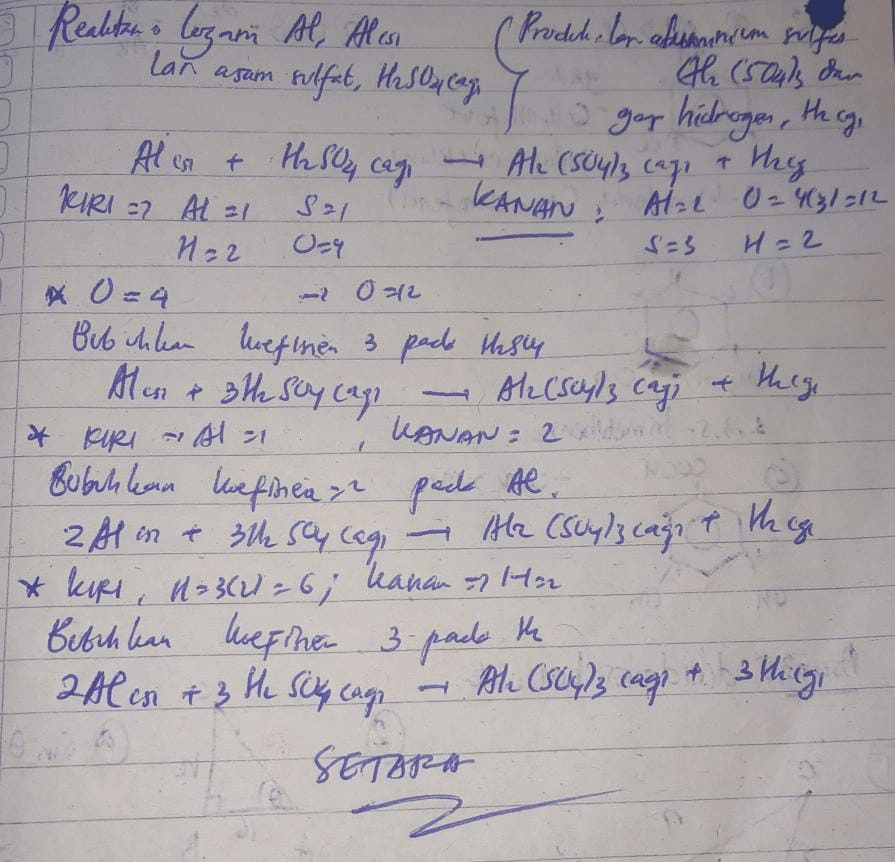 Reaktan : logam Al, Al(s) Produk : lar. aluminium sulfat
lar asam sulfat, H2SO4(aq) Al2(SO4)3 dan
gas hidrogen, H2(g)
Al(s) + H2SO4(aq) → Al2(SO4)3(aq) + H2(g)
KIRI => Al=1 S=1 KANAN : Al=2 O=4(3)=12
H=2 O=4 S=3 H=2
* O=4 → O=12
Bubuhkan koefisien 3 pada H2SO4
Al(s) + 3H2SO4(aq) → Al2(SO4)3(aq) + H2(g)
* KIRI → Al=1 , KANAN = 2
Bubuhkan koefisien =2 pada Al.
2Al(s) + 3H2SO4(aq) → Al2(SO4)3(aq) + H2(g)
* KIRI, H=3(2)=6; kanan => H=2
Bubuhkan koefisien 3 pada H2
2Al(s) + 3H2SO4(aq) → Al2(SO4)3(aq) + 3H2(g)
SETARA